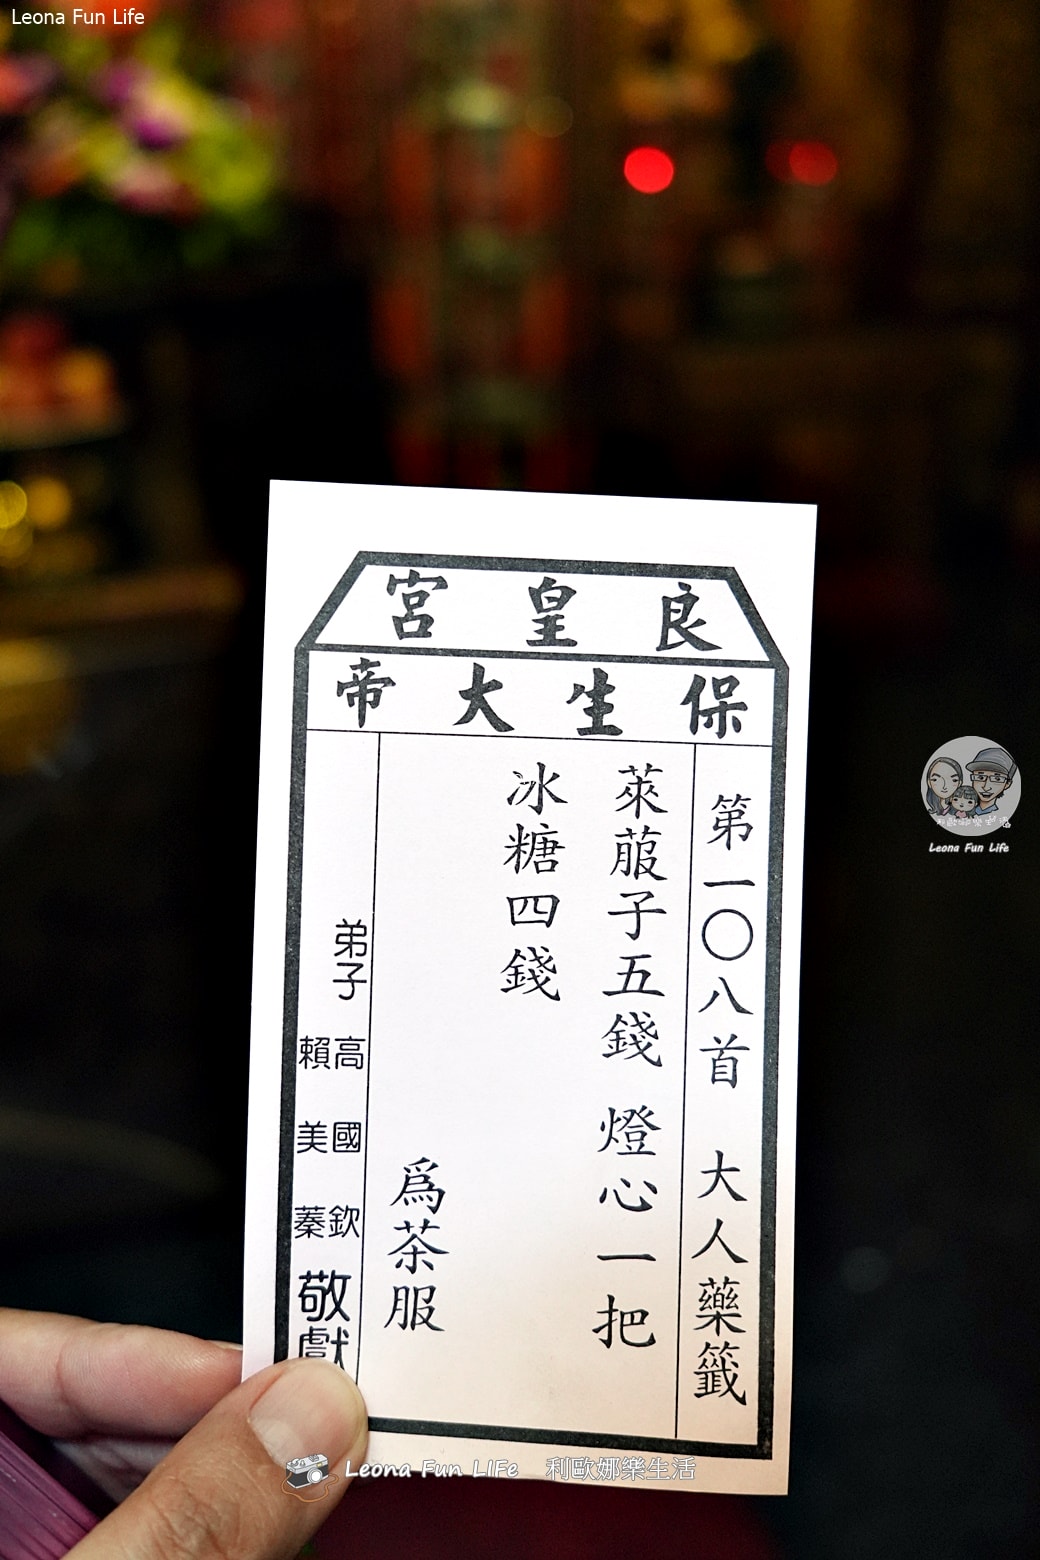 Leona Fun Life
良皇宮
保生大帝
第一〇八首 大人藥籤
萊菔子五錢 燈心一把
冰糖四錢
爲茶服
弟子 高國欽 賴美蓁 敬獻
利歐娜樂生活
Leona Fun Life
Leona Fun LIfe 利歐娜樂生活